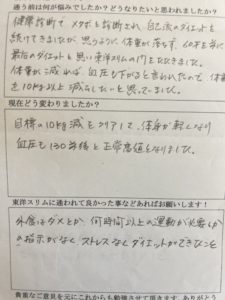 通う前は何が悩みでしたか？どうなりたいと思われましたか？
健康診断でメタボと診断され、自己流のダイエットを
続けてきましたが、思うように体重が落ちず、60才を前に
最後のダイエットと思い東洋スリムの門をたたきました。
体重が減れば、血圧も下がると言われたので、体重
を10kg以上減らしたいと思っていました。
現在どう変わりましたか？
目標の10kg減をクリアして、体が軽くなり
血圧も130前後と正常値となりました。
東洋スリムに通われて良かった事などあればお願いします！
外食はダメとか、何時間以上の運動が必要とか
の指示がなく ストレスなくダイエットができたこと
貴重なご意見を元にこれからも勉強させて頂きます。ありがとう